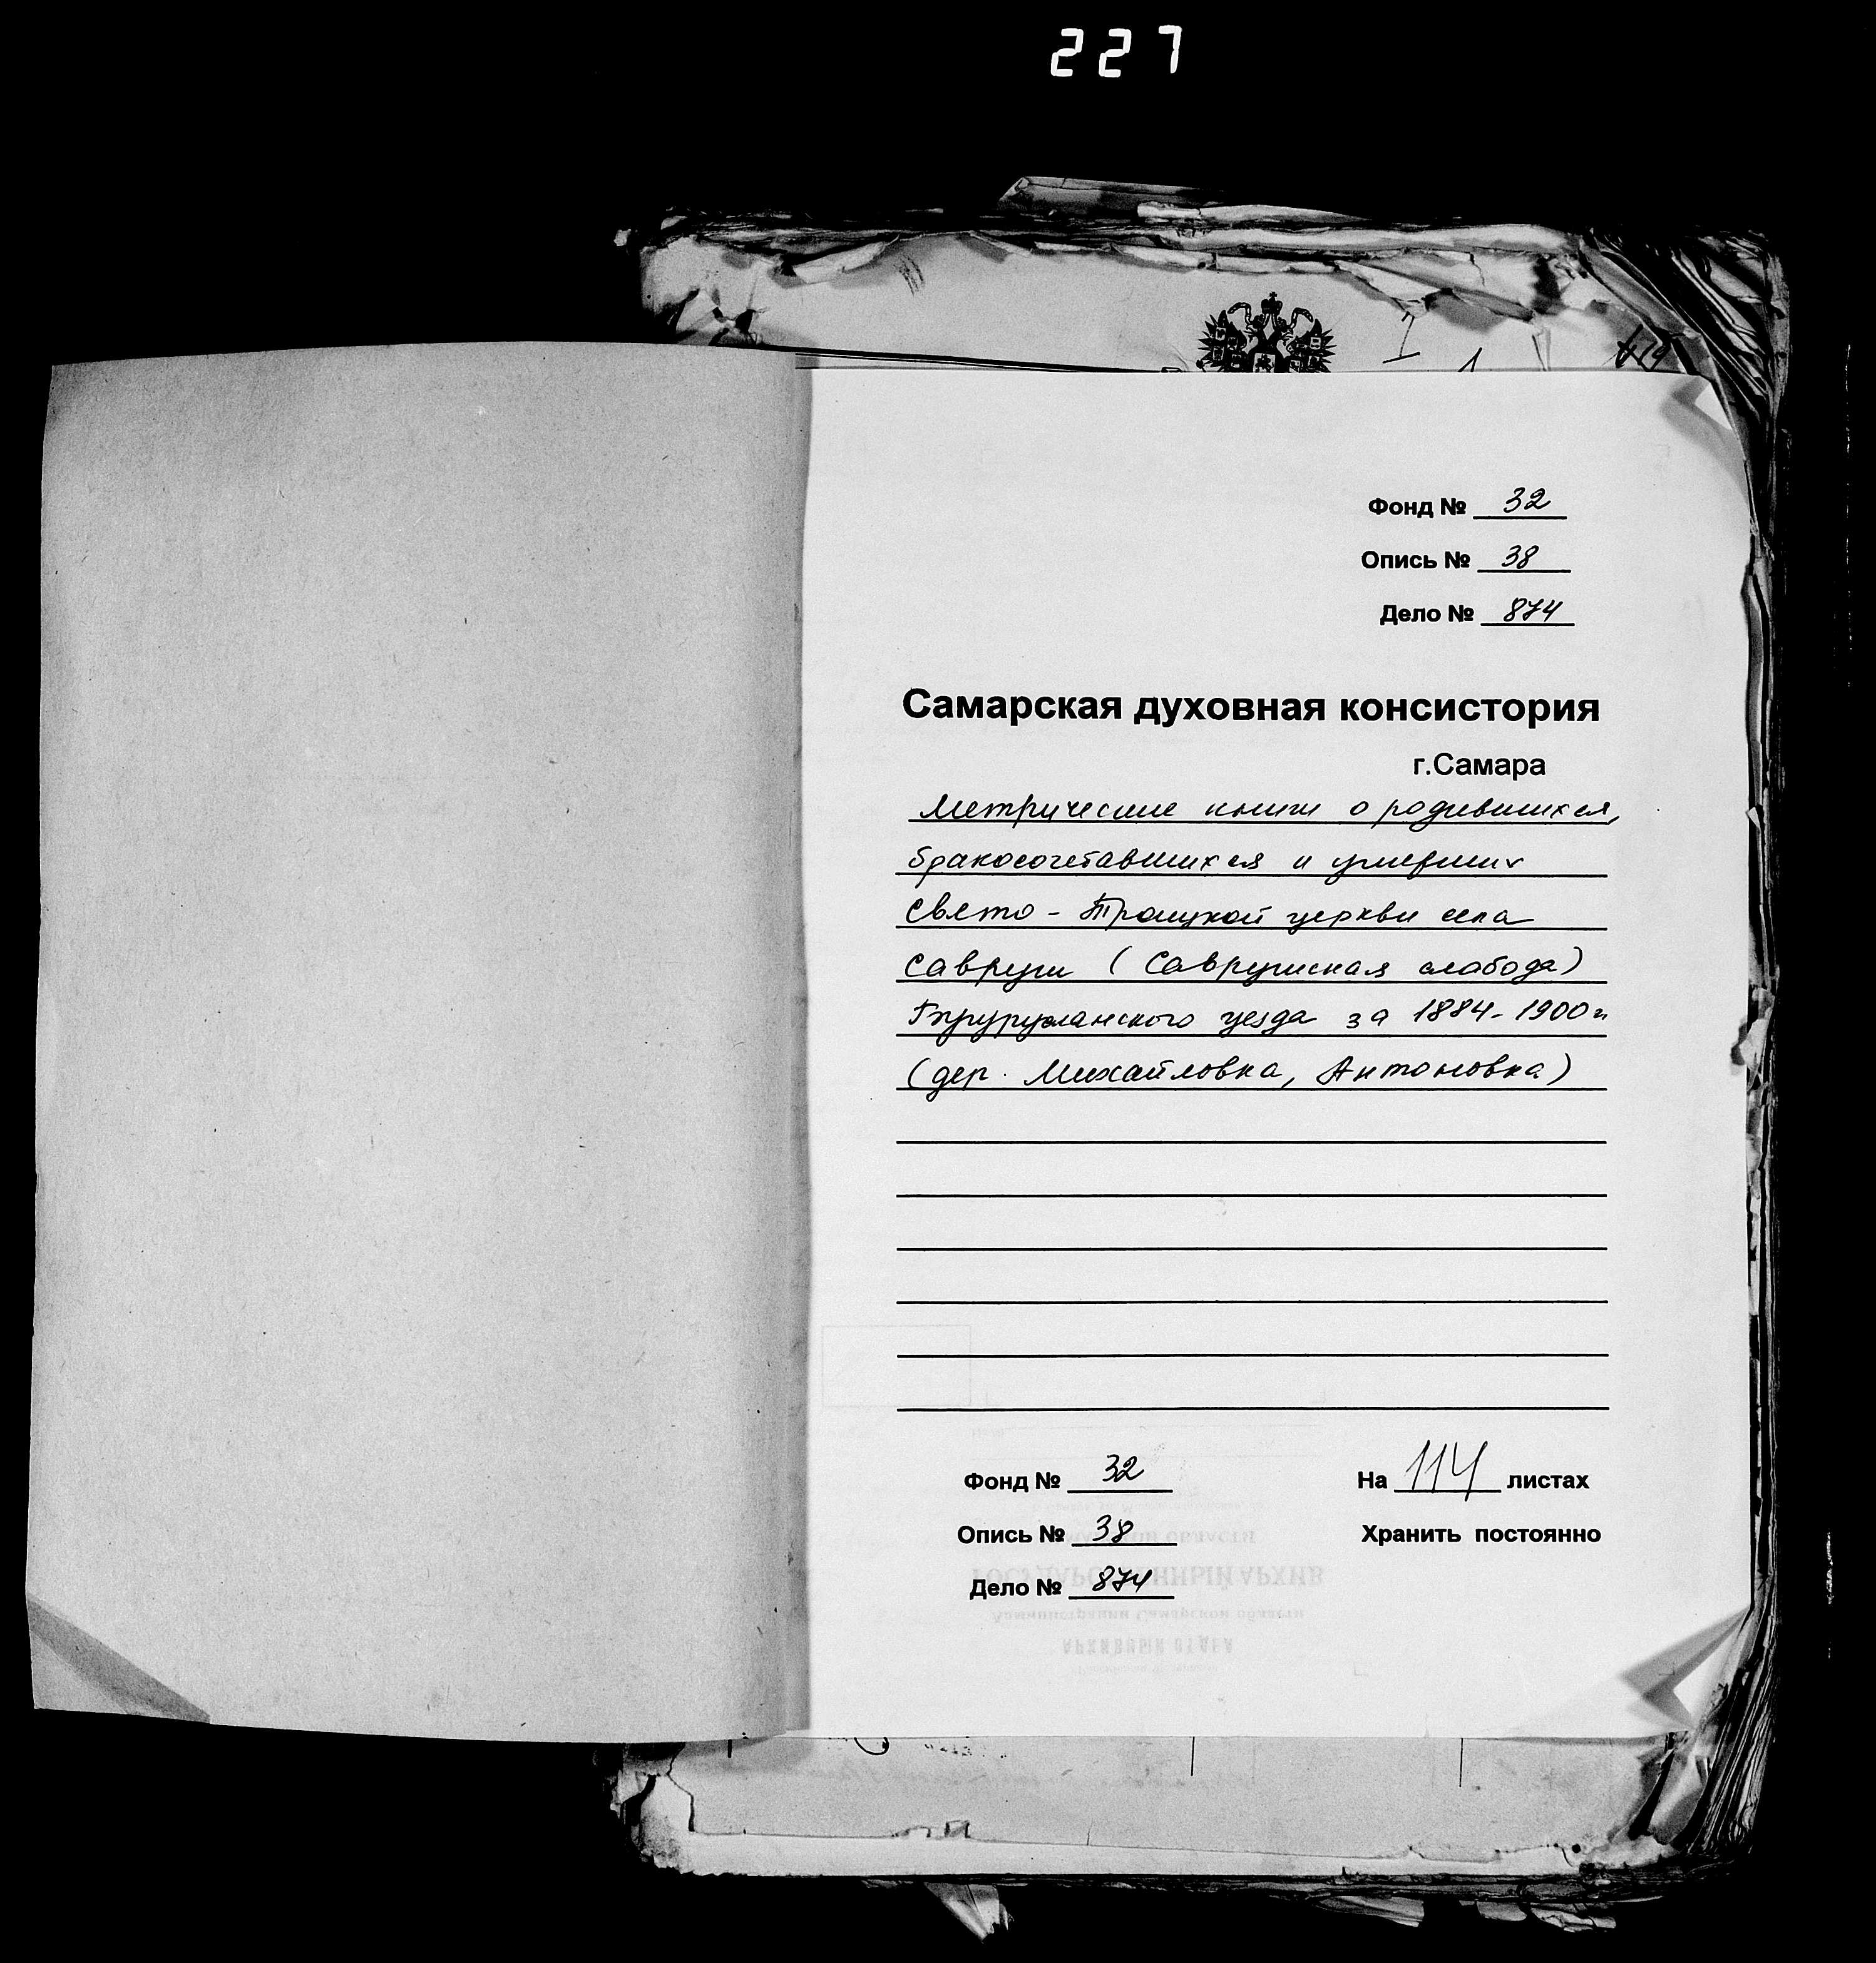 227
Фонд № 32
Опись № 38
Дело № 874
Самарская духовная консистория
г.Самара
Метрические книги о родившихся,
бракосочетавшихся и умерших
Свято - Троицкой церкви села
Савруши (Саврушская слобода)
Бугурусланского уезда за 1884-1900 г
(дер. Михайловка, Антоновка)
Фонд № 32 На 114 листах
Опись № 38 Хранить постоянно
Дело № 874